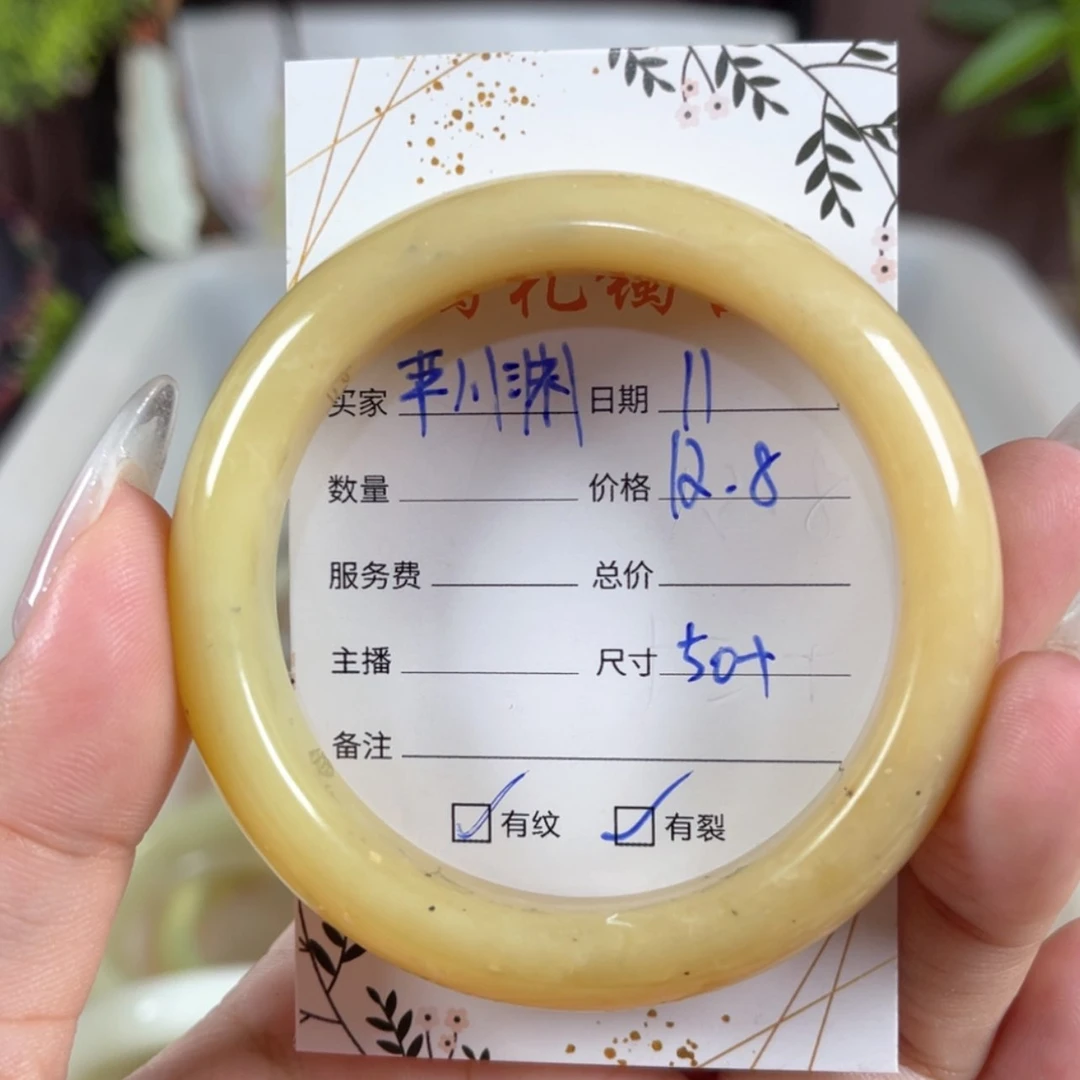 礼镯
买家 平川渊 日期 11
数量 价格 12.8
服务费 总价
主播 尺寸 50+
备注
有纹 有裂